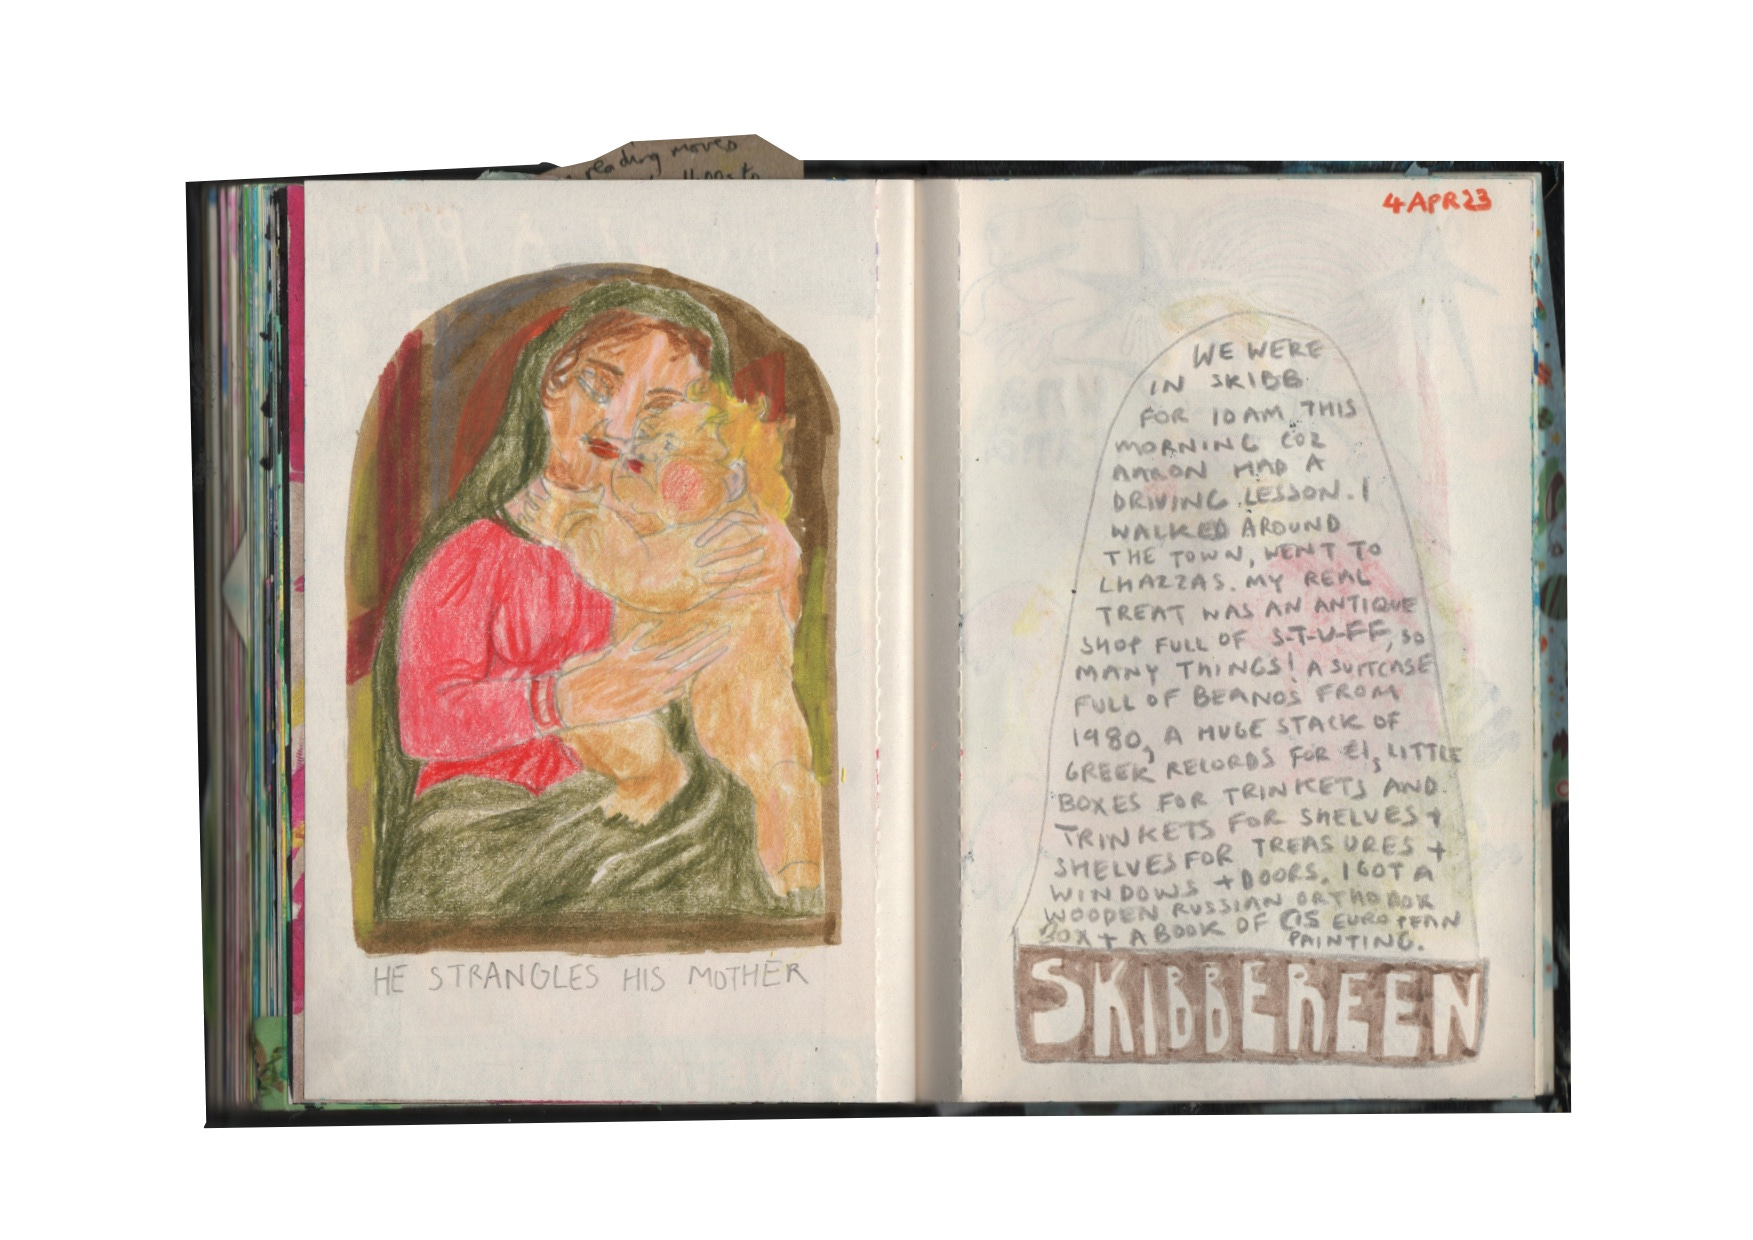 reading moves
HE STRANGLES HIS MOTHER
4 APR 23
WE WERE
IN SKIBB
FOR 10AM THIS
MORNING COZ
AARON HAD A
DRIVING LESSON. I
WALKED AROUND
THE TOWN, WENT TO
LHAZZAS. MY REAL
TREAT WAS AN ANTIQUE
SHOP FULL OF S-T-U-FF, SO
MANY THINGS! A SUITCASE
FULL OF BEANOS FROM
1980, A HUGE STACK OF
GREEK RECORDS FOR €1, LITTLE
BOXES FOR TRINKETS AND
TRINKETS FOR SHELVES +
SHELVES FOR TREASURES +
WINDOWS + DOORS. I GOT A
WOODEN RUSSIAN ORTHODOX
BOX + A BOOK OF C15 EUROPEAN
PAINTING.
SKIBBEREEN